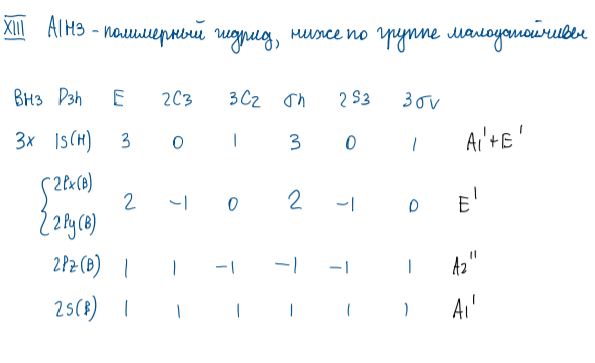 XIII AlH3 - полимерный гидрид, ниже по группе малоустойчивы
BH3 D3h E 2C3 3C2 σh 2S3 3σv
3x 1s(H) 3 0 1 3 0 1 A1'+E'
{2Px(B)
2Py(B) 2 -1 0 2 -1 0 E'
2Pz(B) 1 1 -1 -1 -1 1 A2''
2s(B) 1 1 1 1 1 1 A1'